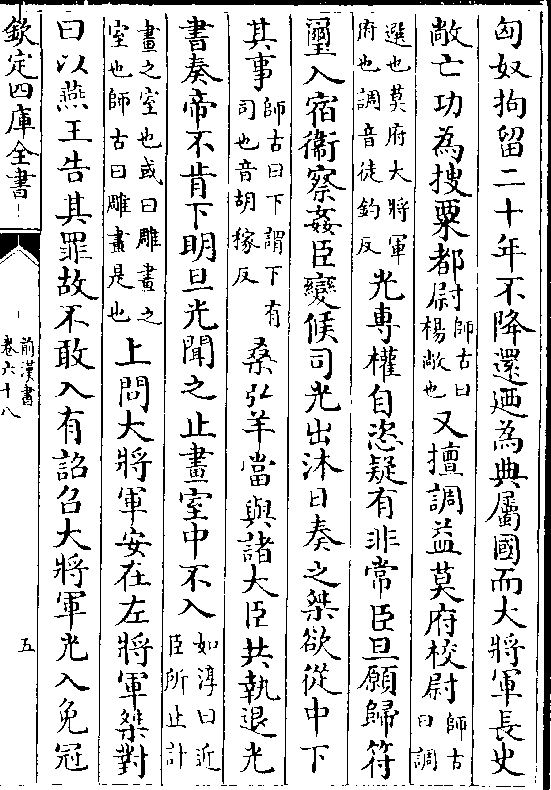 匈奴拘留二十年不降還迺為典屬國而大將軍長史
敞亡功為搜粟都尉師古曰楊敞也又擅調益莫府校尉師古曰調
選也莫府大將軍府也調音徒釣反光専權自恣疑有非常臣旦願歸符
璽入宿衞察姦臣變候司光出沐日奏之桀欲從中下
其事師古曰下謂下有司也音胡稼反桑弘羊當與諸大臣共執退光
書奏帝不肯下明旦光聞之止畫室中不入如淳曰近臣所止計
畫之室也或曰雕畫之室也師古曰雕畫是也上問大將軍安在左將軍桀對
曰以燕王告其罪故不敢入有詔召大將軍光入免冠
欽定四庫全書
前漢書
卷六十八
五